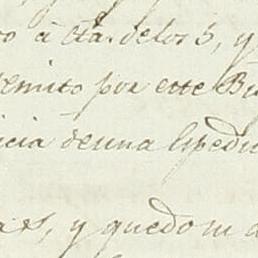 o á cta. de los 5, y
remito por este B
icia de una Espedi
as, y quedo m a